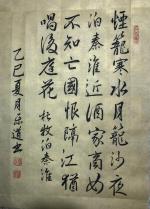 煙籠寒水月籠沙夜
泊秦淮近酒家商女
不知亡國恨隔江猶
唱後庭花 杜牧泊秦淮
乙巳夏月樂道書